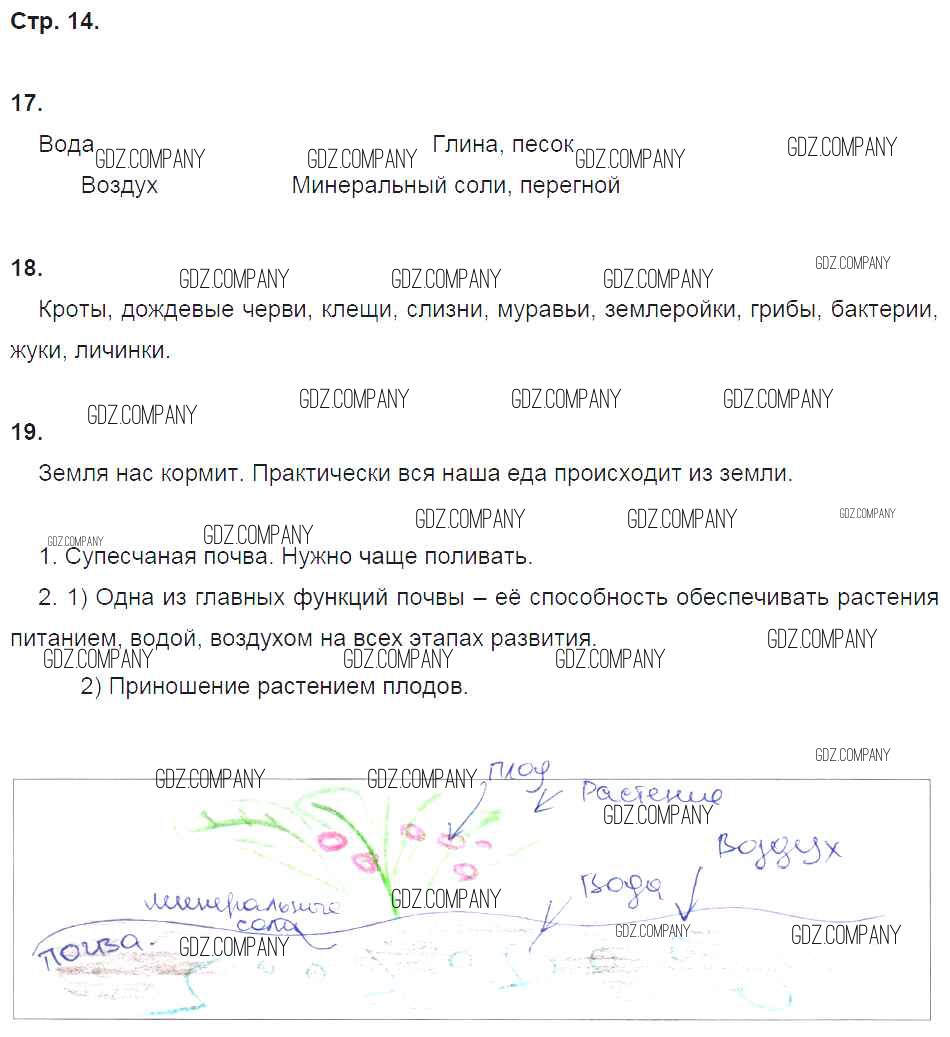 Стр. 14.
17.
Вода GDZ.COMPANY GDZ.COMPANY Глина, песок GDZ.COMPANY GDZ.COMPANY
Воздух Минеральный соли, перегной
18.
GDZ.COMPANY GDZ.COMPANY GDZ.COMPANY GDZ.COMPANY
Кроты, дождевые черви, клещи, слизни, муравьи, землеройки, грибы, бактерии,
жуки, личинки.
GDZ.COMPANY GDZ.COMPANY GDZ.COMPANY GDZ.COMPANY
19.
Земля нас кормит. Практически вся наша еда происходит из земли.
GDZ.COMPANY GDZ.COMPANY GDZ.COMPANY GDZ.COMPANY GDZ.COMPANY
1. Супесчаная почва. Нужно чаще поливать.
2. 1) Одна из главных функций почвы – её способность обеспечивать растения
питанием, водой, воздухом на всех этапах развития.
GDZ.COMPANY GDZ.COMPANY GDZ.COMPANY GDZ.COMPANY
2) Приношение растением плодов.
GDZ.COMPANY
GDZ.COMPANY GDZ.COMPANY плод
Растение
GDZ.COMPANY
Воздух
Вода
GDZ.COMPANY
минеральные
сола
почва.
GDZ.COMPANY GDZ.COMPANY GDZ.COMPANY